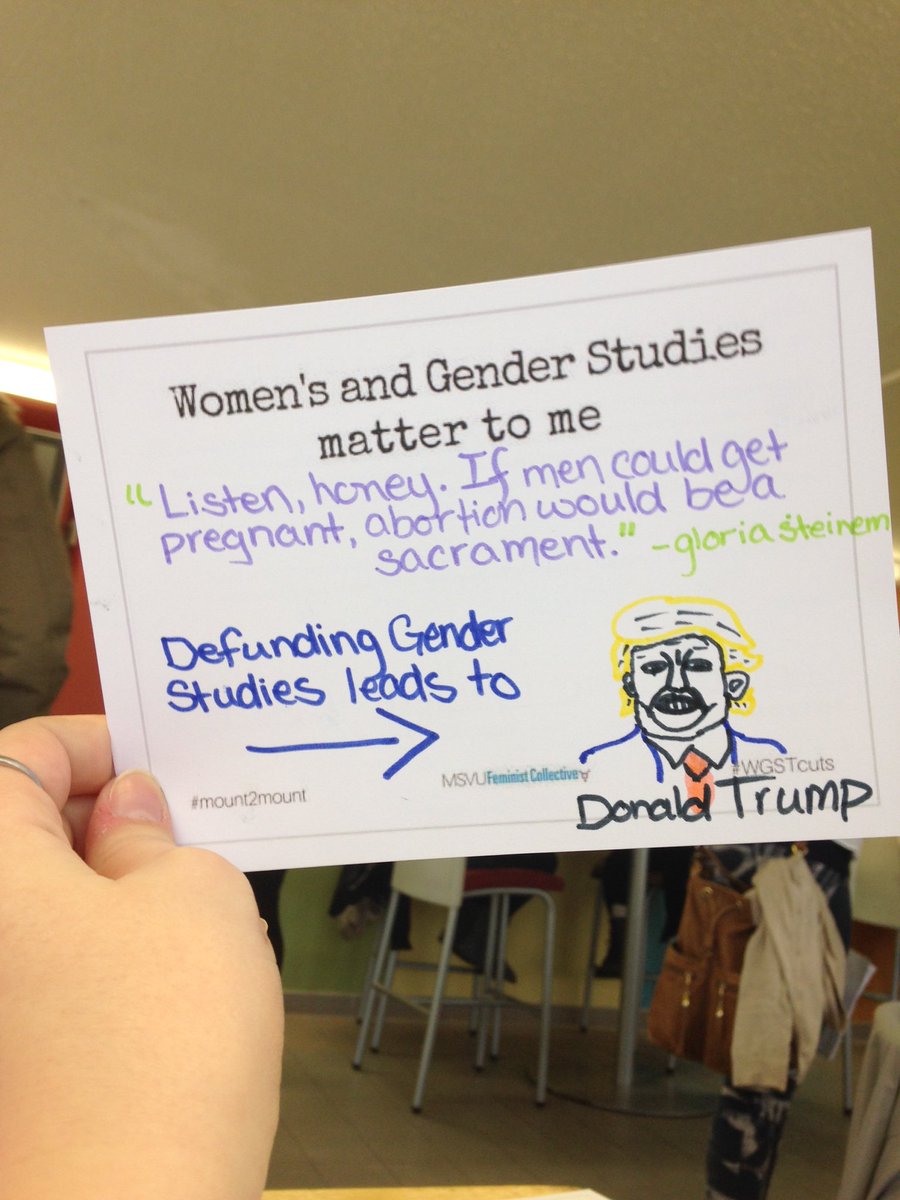 Women's and Gender Studies
matter to me
"Listen, honey. If men could get
pregnant, abortion would be a
sacrament." -gloria steinem
Defunding Gender
Studies leads to
#mount2mount
MSVUFeminist Collective
#WGSTcuts
Donald Trump